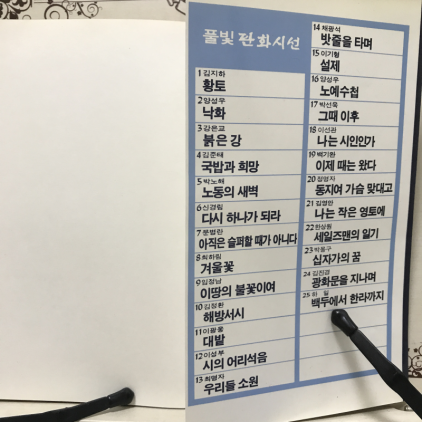 풀빛판화시선
1 김지하
황토
2 양성우
낙화
3 강은교
붉은 강
4 김준태
국밥과 희망
5 박노해
노동의 새벽
6 신경림
다시 하나가 되라
7 문병란
아직은 슬퍼할 때가 아니다
8 최하림
겨울꽃
9 임정남
이땅의 불꽃이여
10 김정환
해방서시
11 이광웅
대밭
12 이성부
시의 어리석음
13 최명자
우리들 소원
14 채광석
밧줄을 타며
15 이기형
설제
16 양성우
노예수첩
17 박선욱
그때 이후
18 이선관
나는 시인인가
19 백기완
이제 때는 왔다
20 정명자
동지여 가슴 맞대고
21 김영안
나는 작은 영토에
22 한상원
세일즈맨의 일기
23 박몽구
십자가의 꿈
24 김진경
광화문을 지나며
25 하 일
백두에서 한라까지